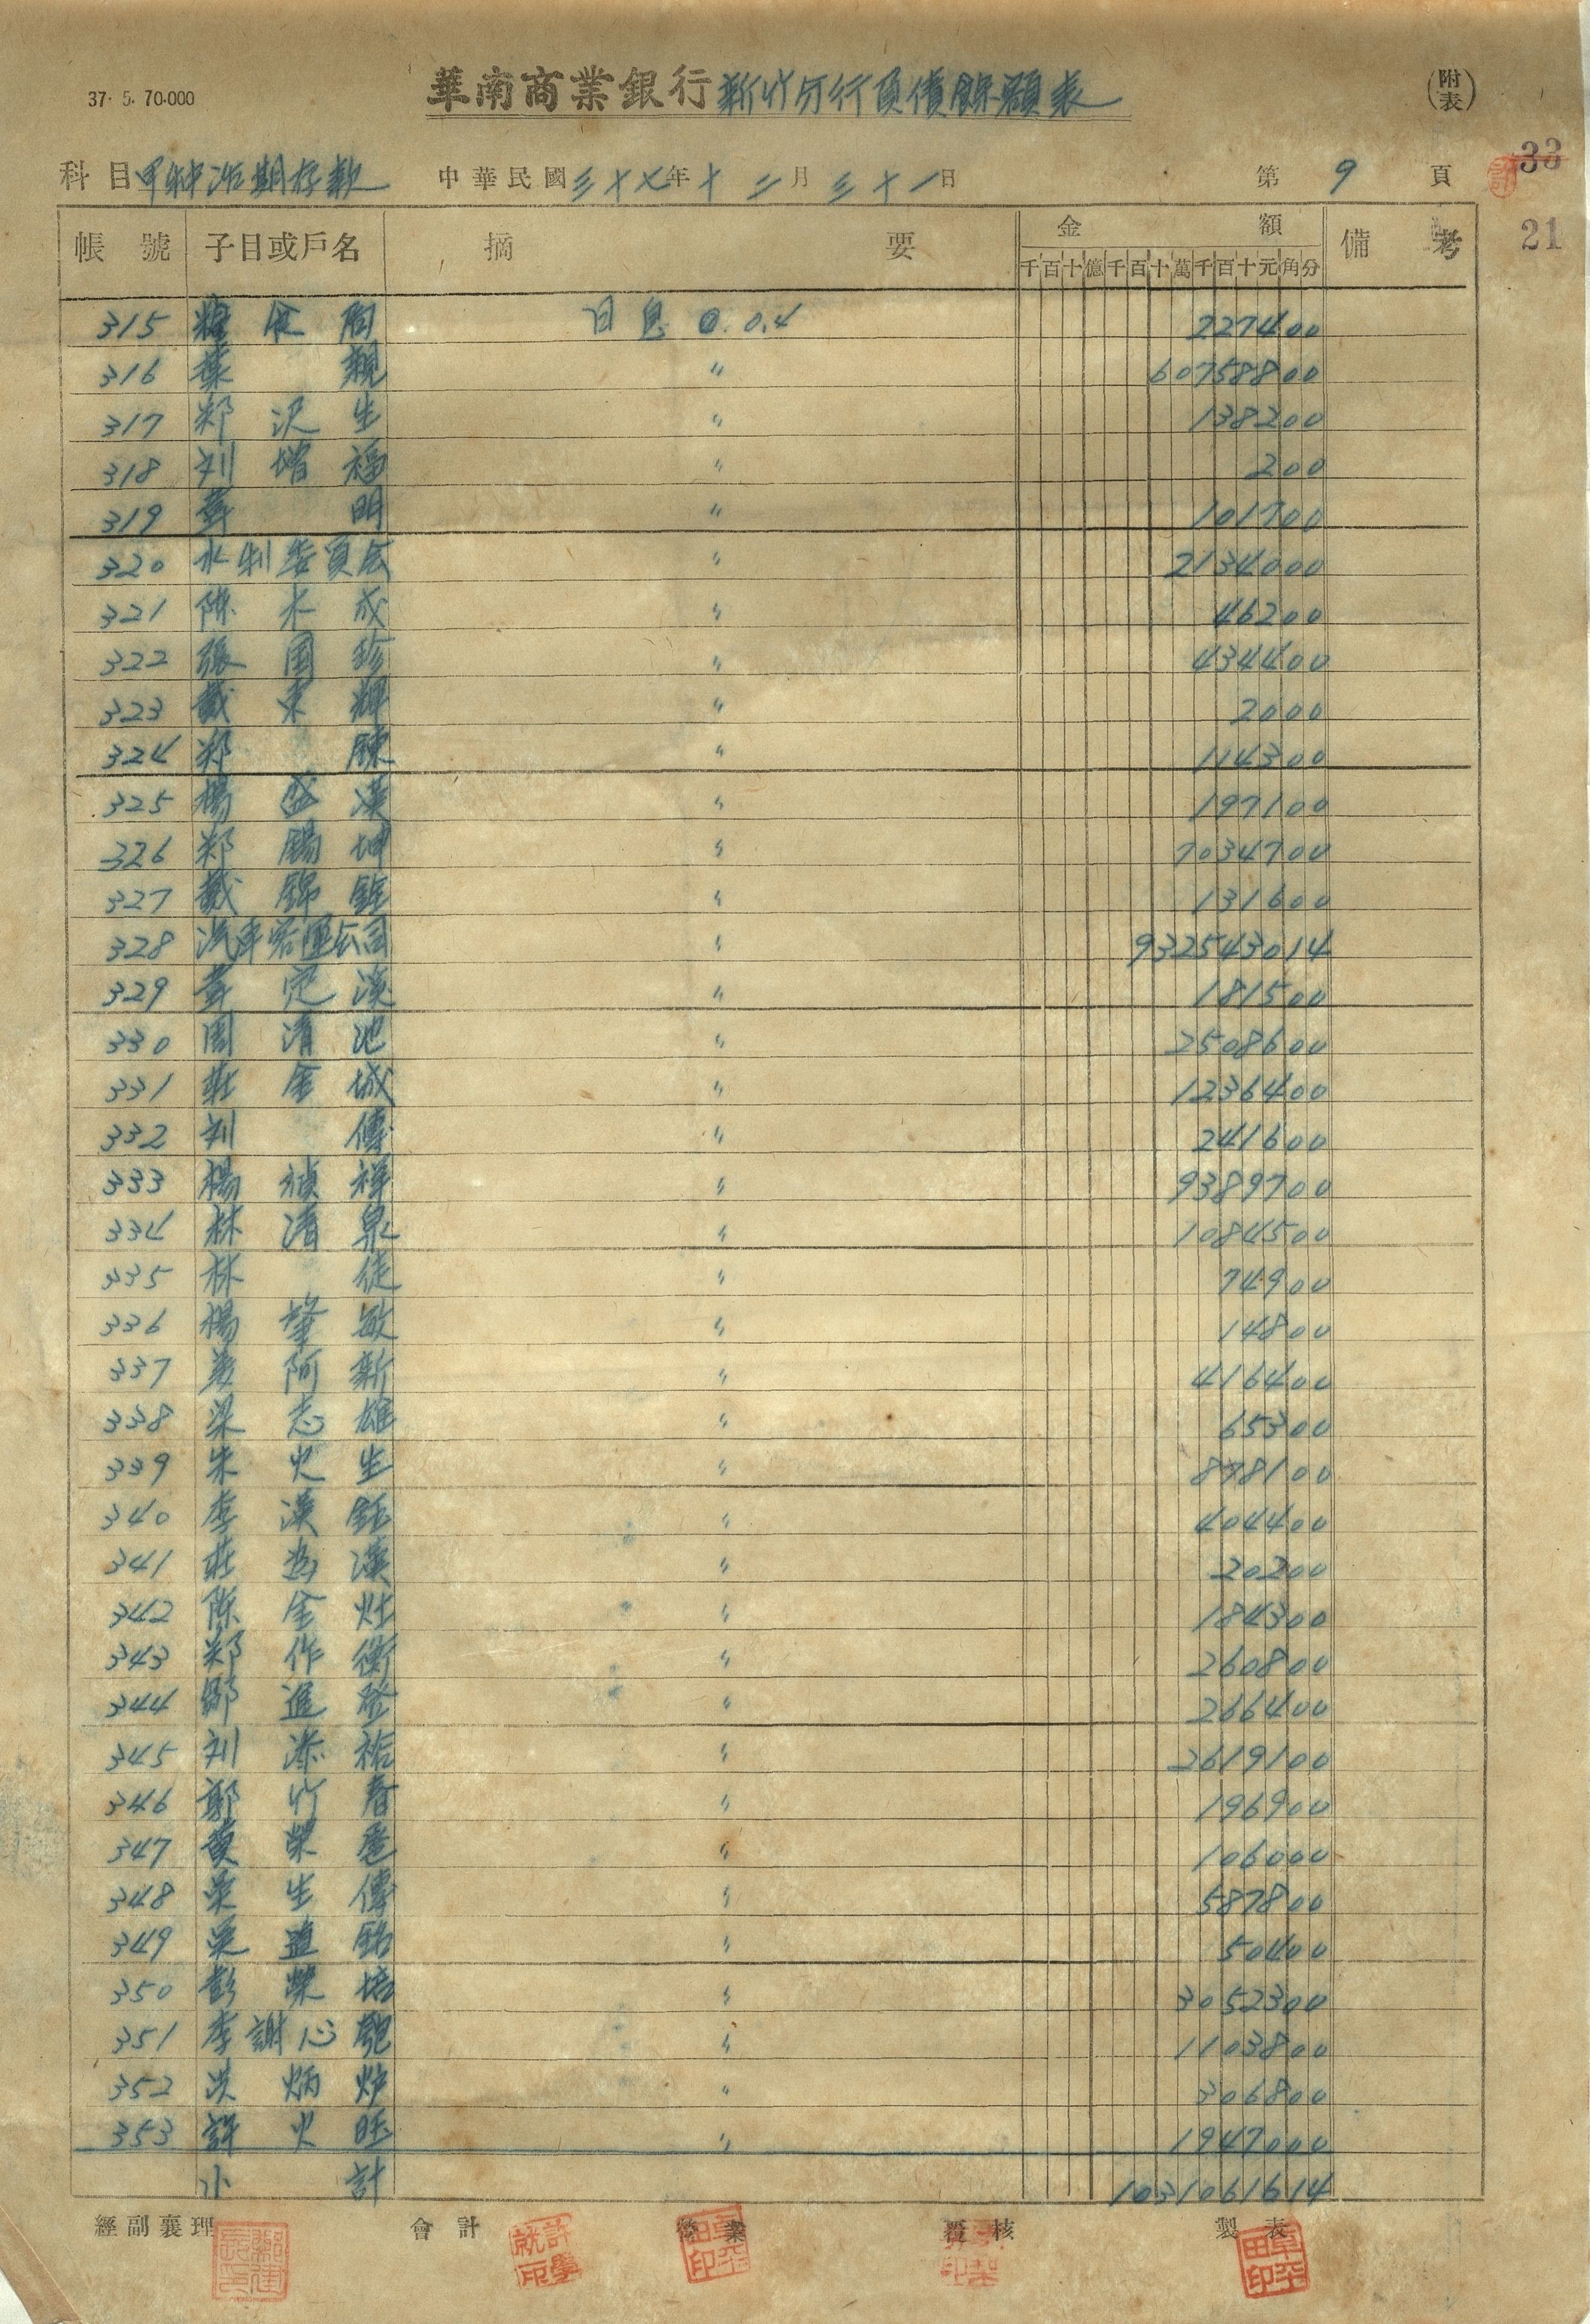 37. 5. 70.000
華南商業銀行新竹分行負債餘額表
(附表)
科目甲種活期存款 中華民國三十七年十二月三十一日 第9頁
33
21
帳號 子目或戶名 摘要 金額 備考
千百十億千百十萬千百十元角分
315 糧食局 日息 0.0.4 227400
316 葉覲 〃 6075880​0
317 郑沢生 〃 138200
318 刘增福 〃 200
319 明 〃 101700
320 水利委員会 〃 2134000
321 陳木成 〃 46200
322 張国珍 〃 434400
323 戴東輝 〃 2000
324 郑鍊 〃 114300
325 楊盛漢 〃 197100
326 郑錫坤 〃 7034700
327 戴錦銓 〃 131600
328 汽車客運公司 〃 932543014
329 定漢 〃 181500
330 周清池 〃 2508600
331 莊金城 〃 1236400
332 刘傳 〃 241600
333 楊禎祥 〃 9389700
334 林清泉 〃 1084500
335 林徒 〃 74900
336 楊肇敏 〃 14800
337 姜阿新 〃 416400
338 梁志雄 〃 65300
339 朱火生 〃 878100
340 李漢鈺 〃 404400
341 莊為漢 〃 20200
342 陳金灶 〃 184300
343 郑作衡 〃 260800
344 鄒進發 〃 266400
345 刘添祐 〃 2619100
346 鄭竹春 〃 196900
347 黄榮 〃 106000
348 吳生傳 〃 587800
349 吳直銘 〃 50400
350 彭榮培 〃 3052300
351 李謝心 〃 1103800
352 洪炳炉 〃 306800
353 許火旺 〃 1947000
小計 1031061614
經副襄理 會計 營業 覆核 製表
許學就印